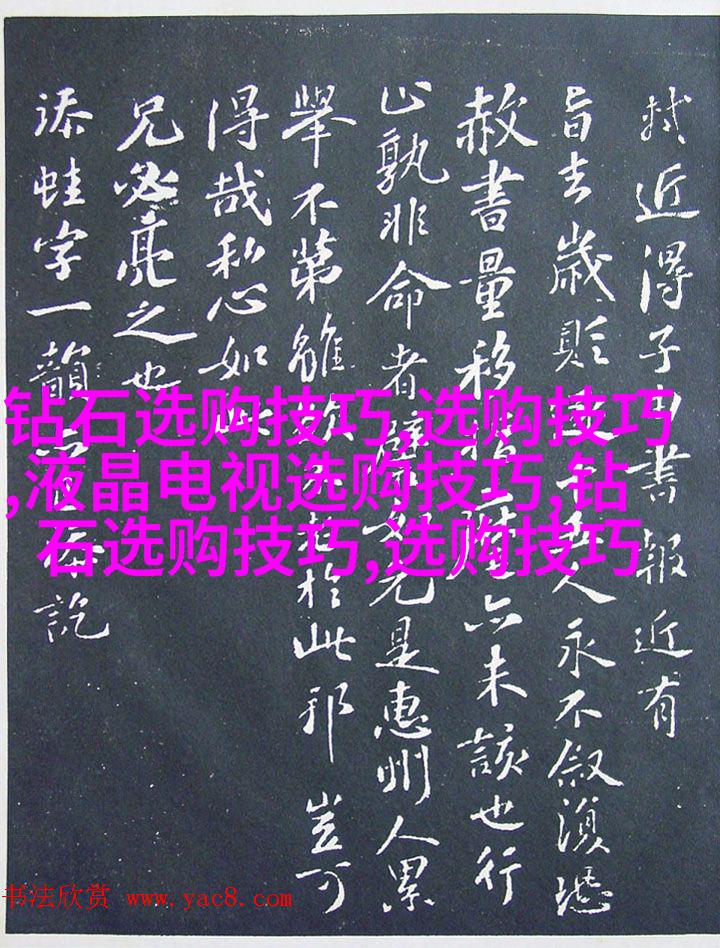 軾近得子由書報近有
旨去歲貶人永不叙恐
赦書量移指亦未該也行
止孰非命者譬如元是惠州人累
舉不第雖於此邪豈可
得哉私心如此
兄必亮之也
添蛙字一韻訖
钻石选购技巧,选购技巧
,液晶电视选购技巧,钻
石选购技巧,选购技巧
书法欣赏 www.yac8.com